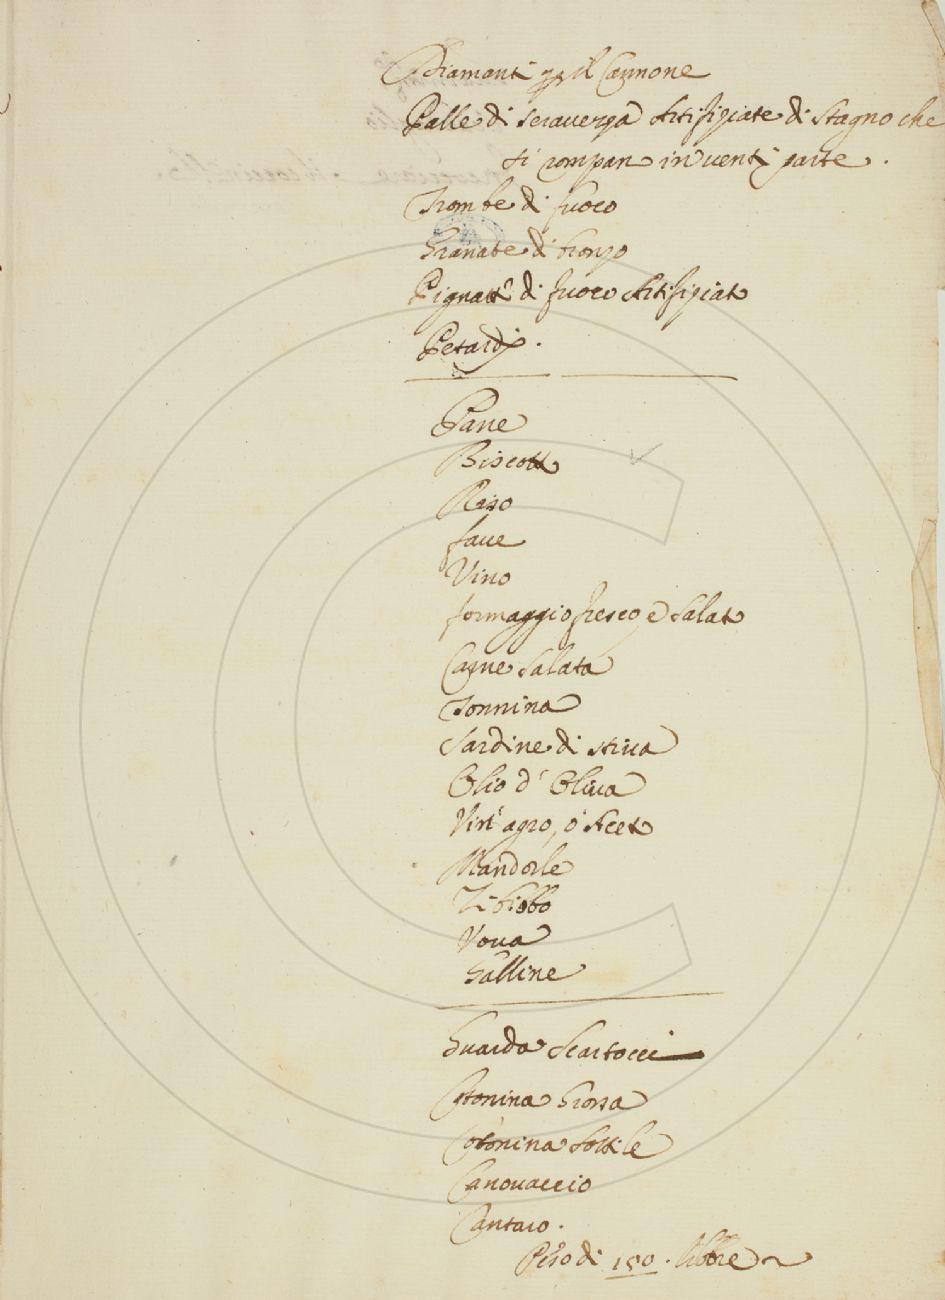 Diamanti p il Cannone
Palle di Seraverza Artifiziate di Stagno che
si rompan in venti parte.
Trombe di fuoco
Granate di bronzo
Pignatti di fuoco Artifiziato
Petardi.
Pane
Biscotto
Riso
fave
Vino
formaggio fresco e Salato
Carne Salata
Tonnina
Sardine di stiva
Olio d'Oliva
Vin'agro, ò Aceto
Mandorle
Zibibbo
Vova
Galline
Guarda Scartocci
Cotonina Grossa
Cotonina Sottile
Canovaccio
Cantaro.
Peso di 150. libbre